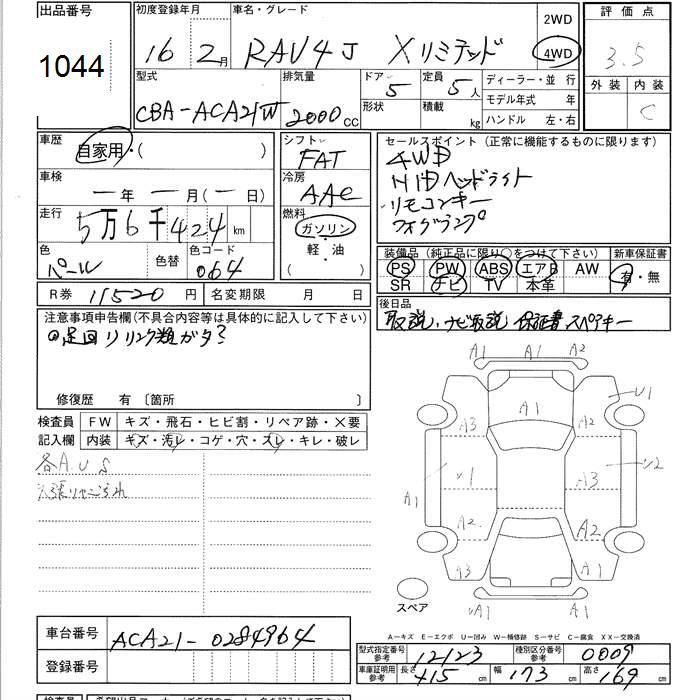 出品番号 1044
初度登録年月 16 2月
車名・グレード RAV4 J Xリミテッド
2WD 4WD
評価点 3.5
外装 内装 C
型式 CBA-ACA21W
排気量 2000cc
ドア 5 形状
定員 5人 積載 kg
ディーラー・並行
モデル年式 年
ハンドル 左・右
車歴 自家用・( )
車検 ー年ー月(ー日)
走行 5万6千424km
色 パール 色替
色コード 064
シフト FAT
冷房 AAC
燃料 ガソリン・軽・油
( )
セールスポイント(正常に機能するものに限ります)
4WD
HIDヘッドライト
リモコンキー
フォグランプ
装備品(純正品に限り○をつけて下さい) 新車保証書
PS PW ABS エアB AW 有・無
SR ナビ TV 本革
R券 11520円 名変期限 月 日
後日品
取説、ナビ取説 保証書 スペアキー
注意事項申告欄(不具合内容等は具体的に記入して下さい)
足回り
ガタ?
修復歴 有 〔箇所 〕
検査員記入欄 FW キズ・飛石・ヒビ割・リペア跡・×要
内装 キズ・汚レ・コゲ・穴・スレ・キレ・破レ
各A.U.S
A1 A1 A2
U1
A3 A1 A2
A1 U1 A3 U2
A2 A2
A3 A1
UA1 A1
スペア
A-キズ E-エクボ U-凹み W-補修跡 S-サビ C-腐食 XX-交換済
車台番号 ACA21-0284964
登録番号
型式指定番号 参考 12123
種別区分番号 参考 0009
車庫証明用 参考 長さ 415cm 幅 173cm 高さ 169cm